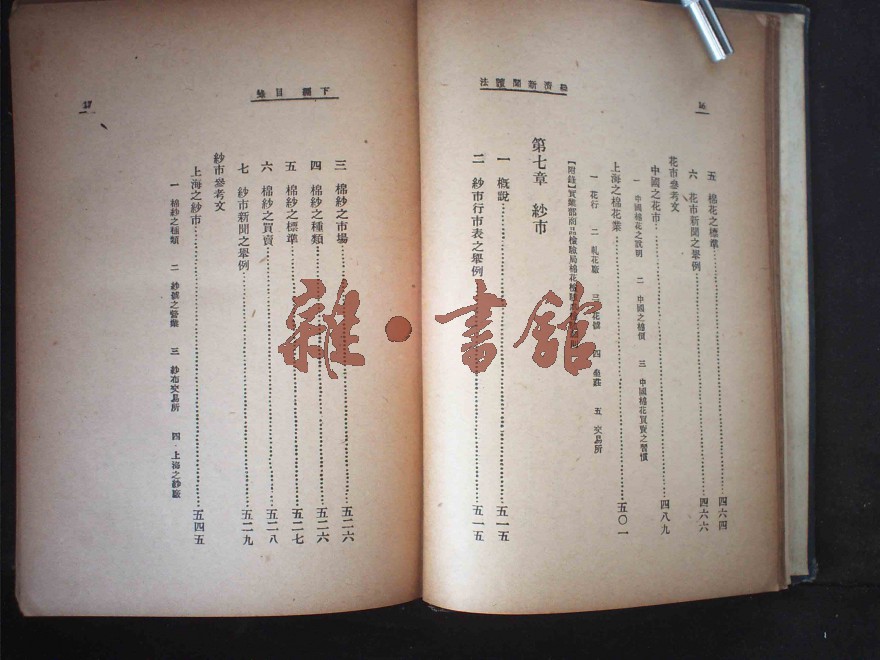 經濟新聞讀法
16
五 棉花之標準……四六四
六 花市新聞之舉例……四六六
花市參考文
中國之花市……四八九
一 中國棉花之說明 二 中國之棉價 三 中國棉花買賣之習慣
上海之棉花業……五〇一
一 花行 二 軋花廠 三 花號 四 桑莊 五 交易所
【附錄】實業部商品檢驗局棉花檢驗
第七章 紗市
一 概說……五一五
二 紗市行市表之舉例……五一五
下欄目錄
17
三 棉紗之市場……五二六
四 棉紗之種類……五二六
五 棉紗之標準……五二七
六 棉紗之買賣……五二八
七 紗市新聞之舉例……五二九
紗市參考文
上海之紗市……五四五
一 棉紗之種類 二 紗號之營業 三 紗布交易所 四 上海之紗廠
雜·書館